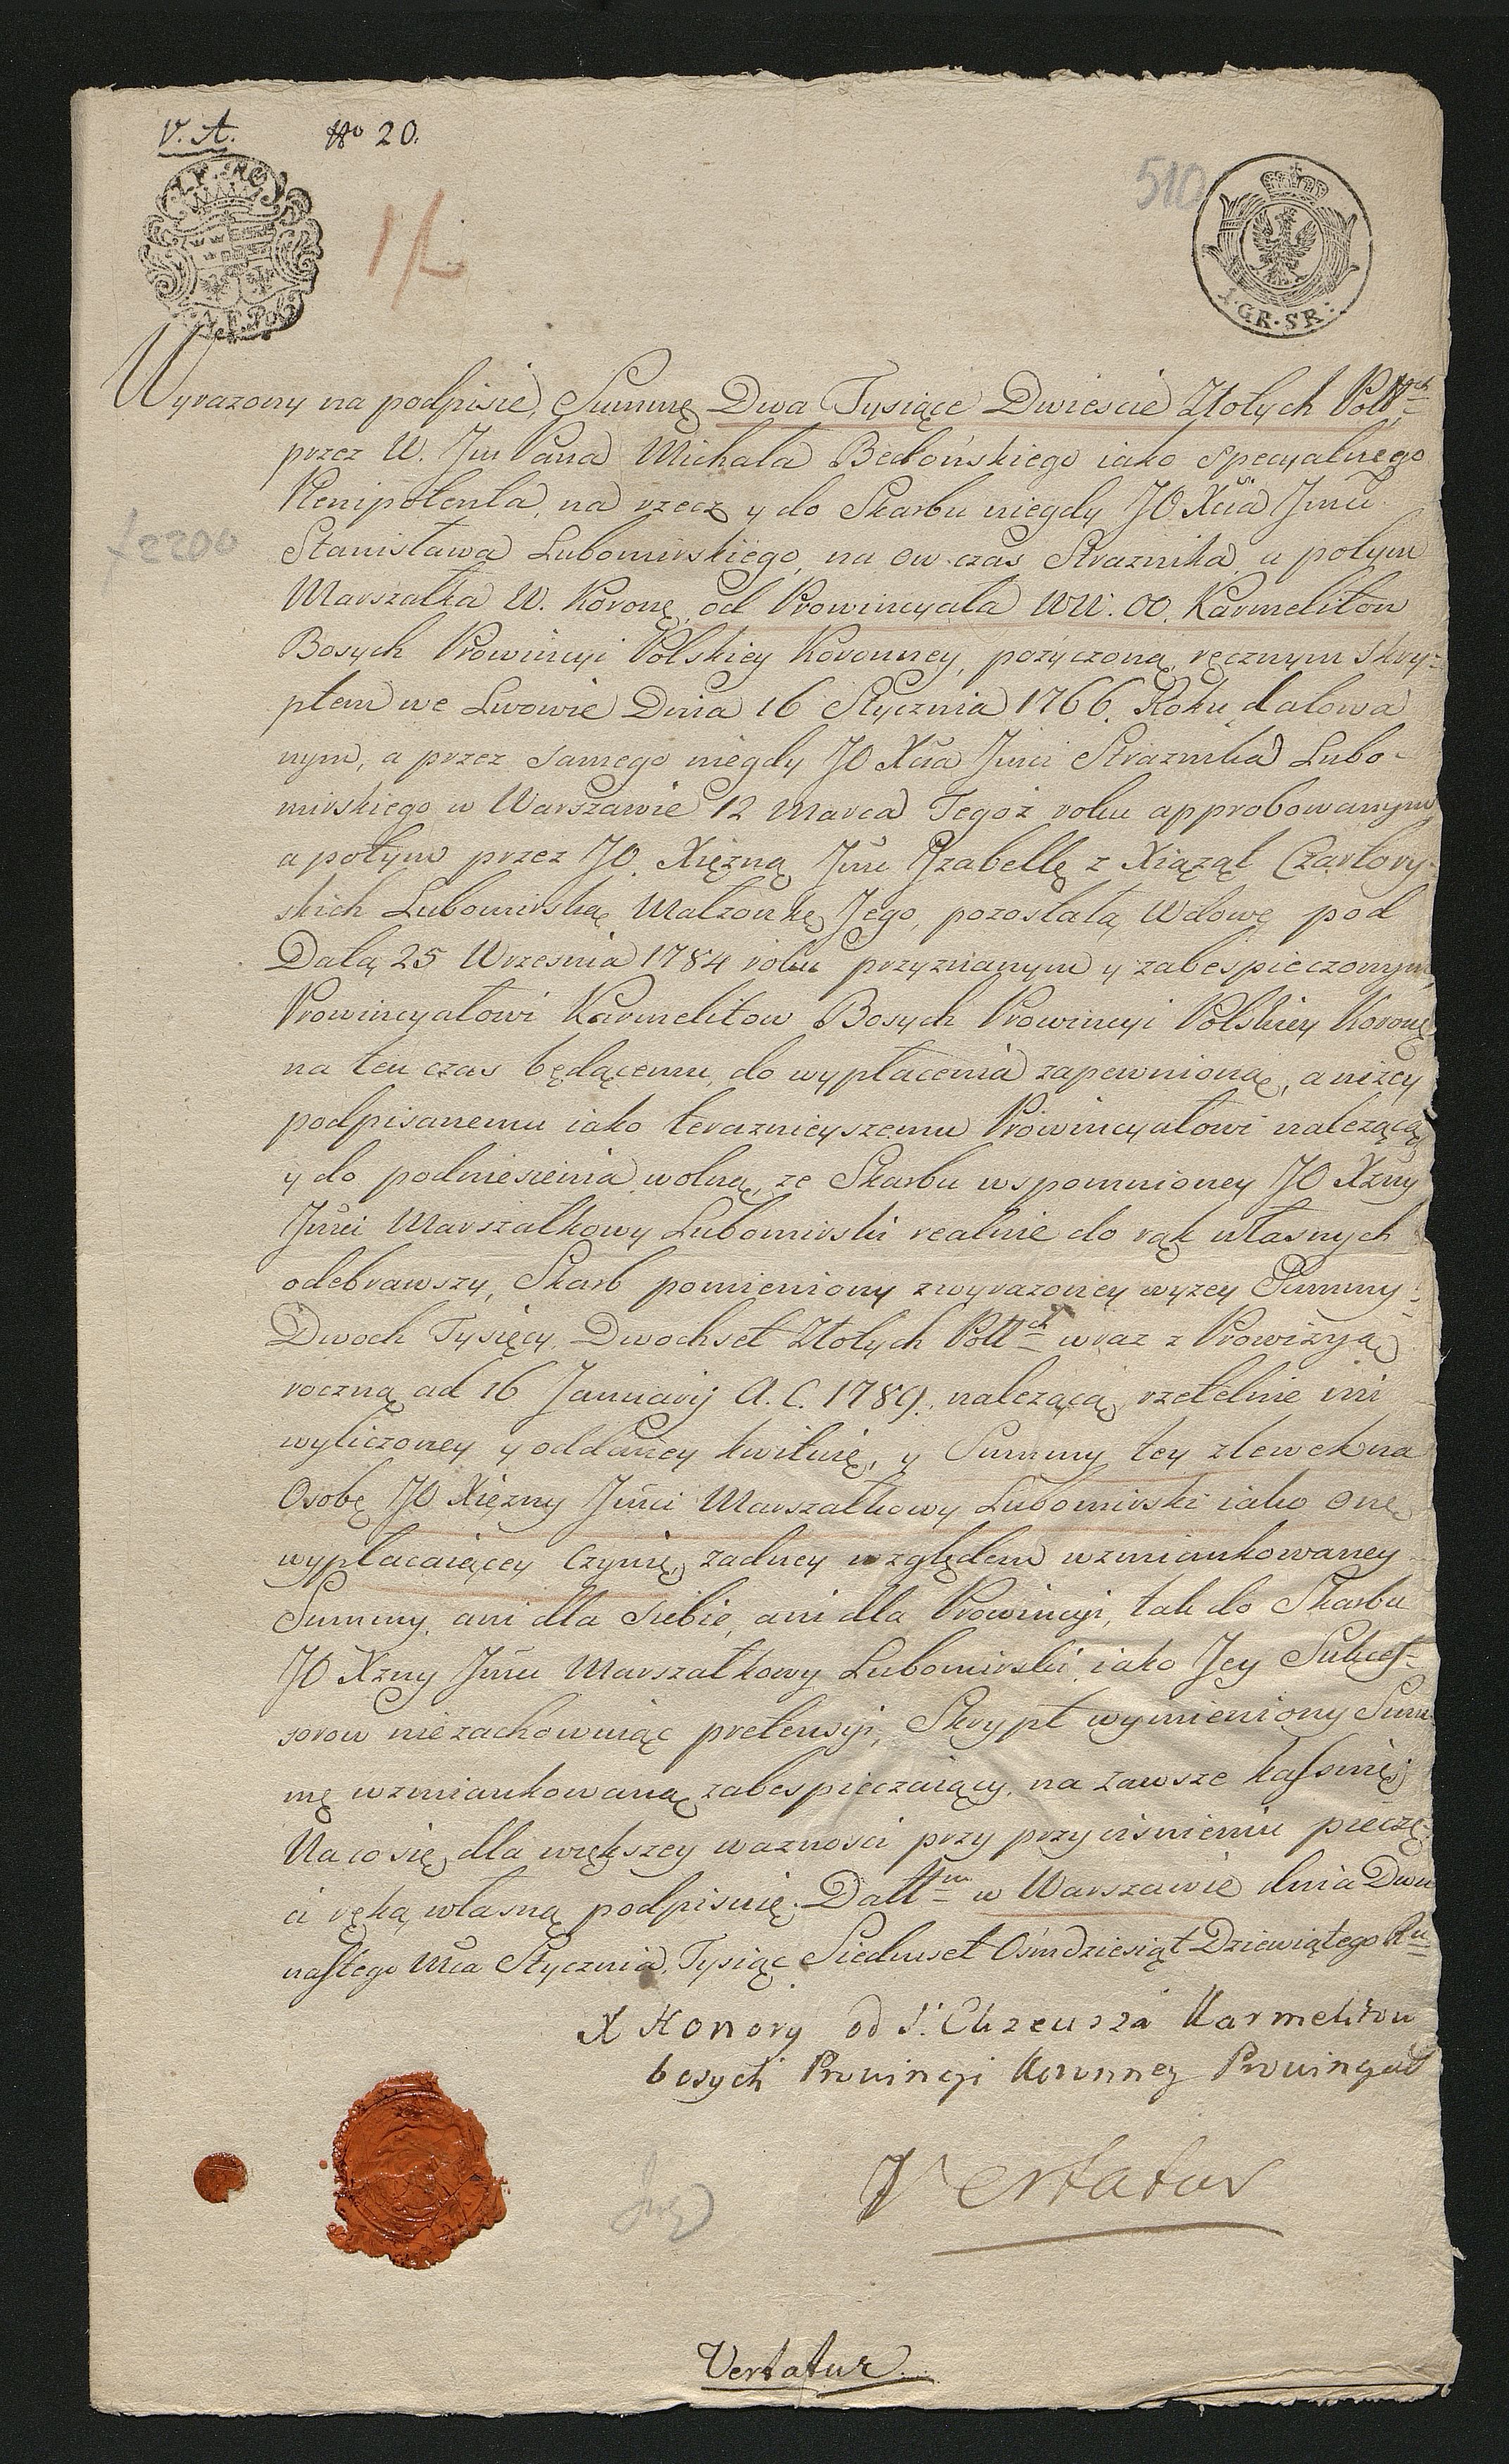 V. A. No 20.
510
1.GR.SR:
Wyrazony na podpisie, Summę Dwa Tysiące Dwieście Złotych Poll^ch
przez W. Jm Pana Michała Bedońskiego iako specyalnego
Plenipotenta, na rzecz y do Skarbu niegdy JO Xcia Jmci
f 2200
Stanisława Lubomirskiego, na ow czas Straznika, a potym
Marszałka W. Koronę, od Prowincyała WW. OO. Karmelitow
Bosych Prowincyi Polskiey Koronney, pozyczoną, ręcznym skry-
ptem we Lwowie Dnia 16 Stycznia 1766. Roku datowa
nym, a przez samego niegdy JO Xcia Jmci Straznika Lubo-
mirskiego w Warszawie 12 Marca Tegoż roku approbowanym,
a potym przez JO. Xięzną Jmc Jzabellę z Xiąząt Czartory-
skich Lubomirską Małzonkę Jego, pozostałą Wdowę pod
Datą 25 Wrzesnia 1784 roku przyznanym y zabespieczonym,
Prowincyałowi Karmelitow Bosych Prowincyi Polskiey Koronę
na ten czas będącemu, do wypłacenia zapewnioną, a nizey
podpisanemu iako teraznieyszemu Prowincyałowi nalezącą
y do podniesienia wolną, ze Skarbu wspomnioney JO Xzny
Jmci Marszałkowy Lubomirski realnie do rąk własnych
odebrawszy, Skarb pomieniony z wyrazoney wyzey Summy-
Dwoch Tysięcy Dwochset Złotych Poll^ch wraz z Prowizyą
roczną ad 16 Januarij A. C. 1789. nalezącą rzetelnie mi
wyliczoney y oddaney kwituię, y Summy tey zlewek na
Osobę JO Xięzny Jmci Marszałkowy Lubomirski iako onę
wypłacaiącey czynię, zadney względem wzmiankowaney
Summy, ani dla siebie, ani dla Prowincyi, tak do Skarbu
JO Xzny Jmci Marszałkowy Lubomirski iako Jey Sukces-
sorow niezachowuiąc pretensyi, Skrypt wymieniony Sum-
mę wzmiankowaną zabespieczaiący, na zawsze kassuię;
Na co się dla większey waznosci przy przycisnieniu pieczę-
ci ręką własną podpisuię. Datt^m w Warszawie dnia Dwu
nastego Mca Stycznia, Tysiąc Siedmset Osmdziesiąt Dziewiątego Ru
X Honory od S. Elizeusza Karmelitow
bosych Prowincyi Koronney Prowincyał
Vertatur
Vertatur